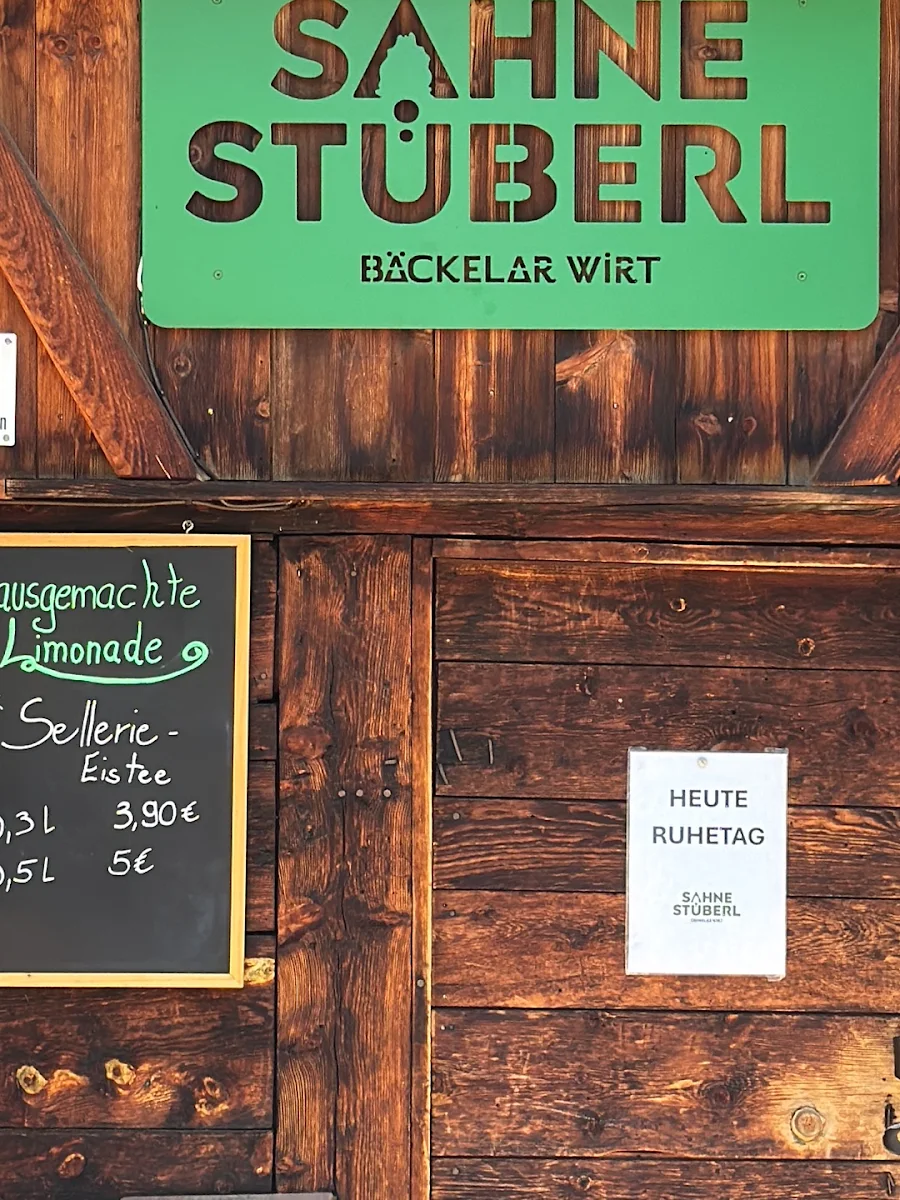 SAHNE
STÜBERL
BÄCKELAR WIRT
n
ausgemachte
Limonade
Sellerie-
Eistee
0,3L 3,90€
0,5L 5€
HEUTE
RUHETAG
SAHNE
STÜBERL